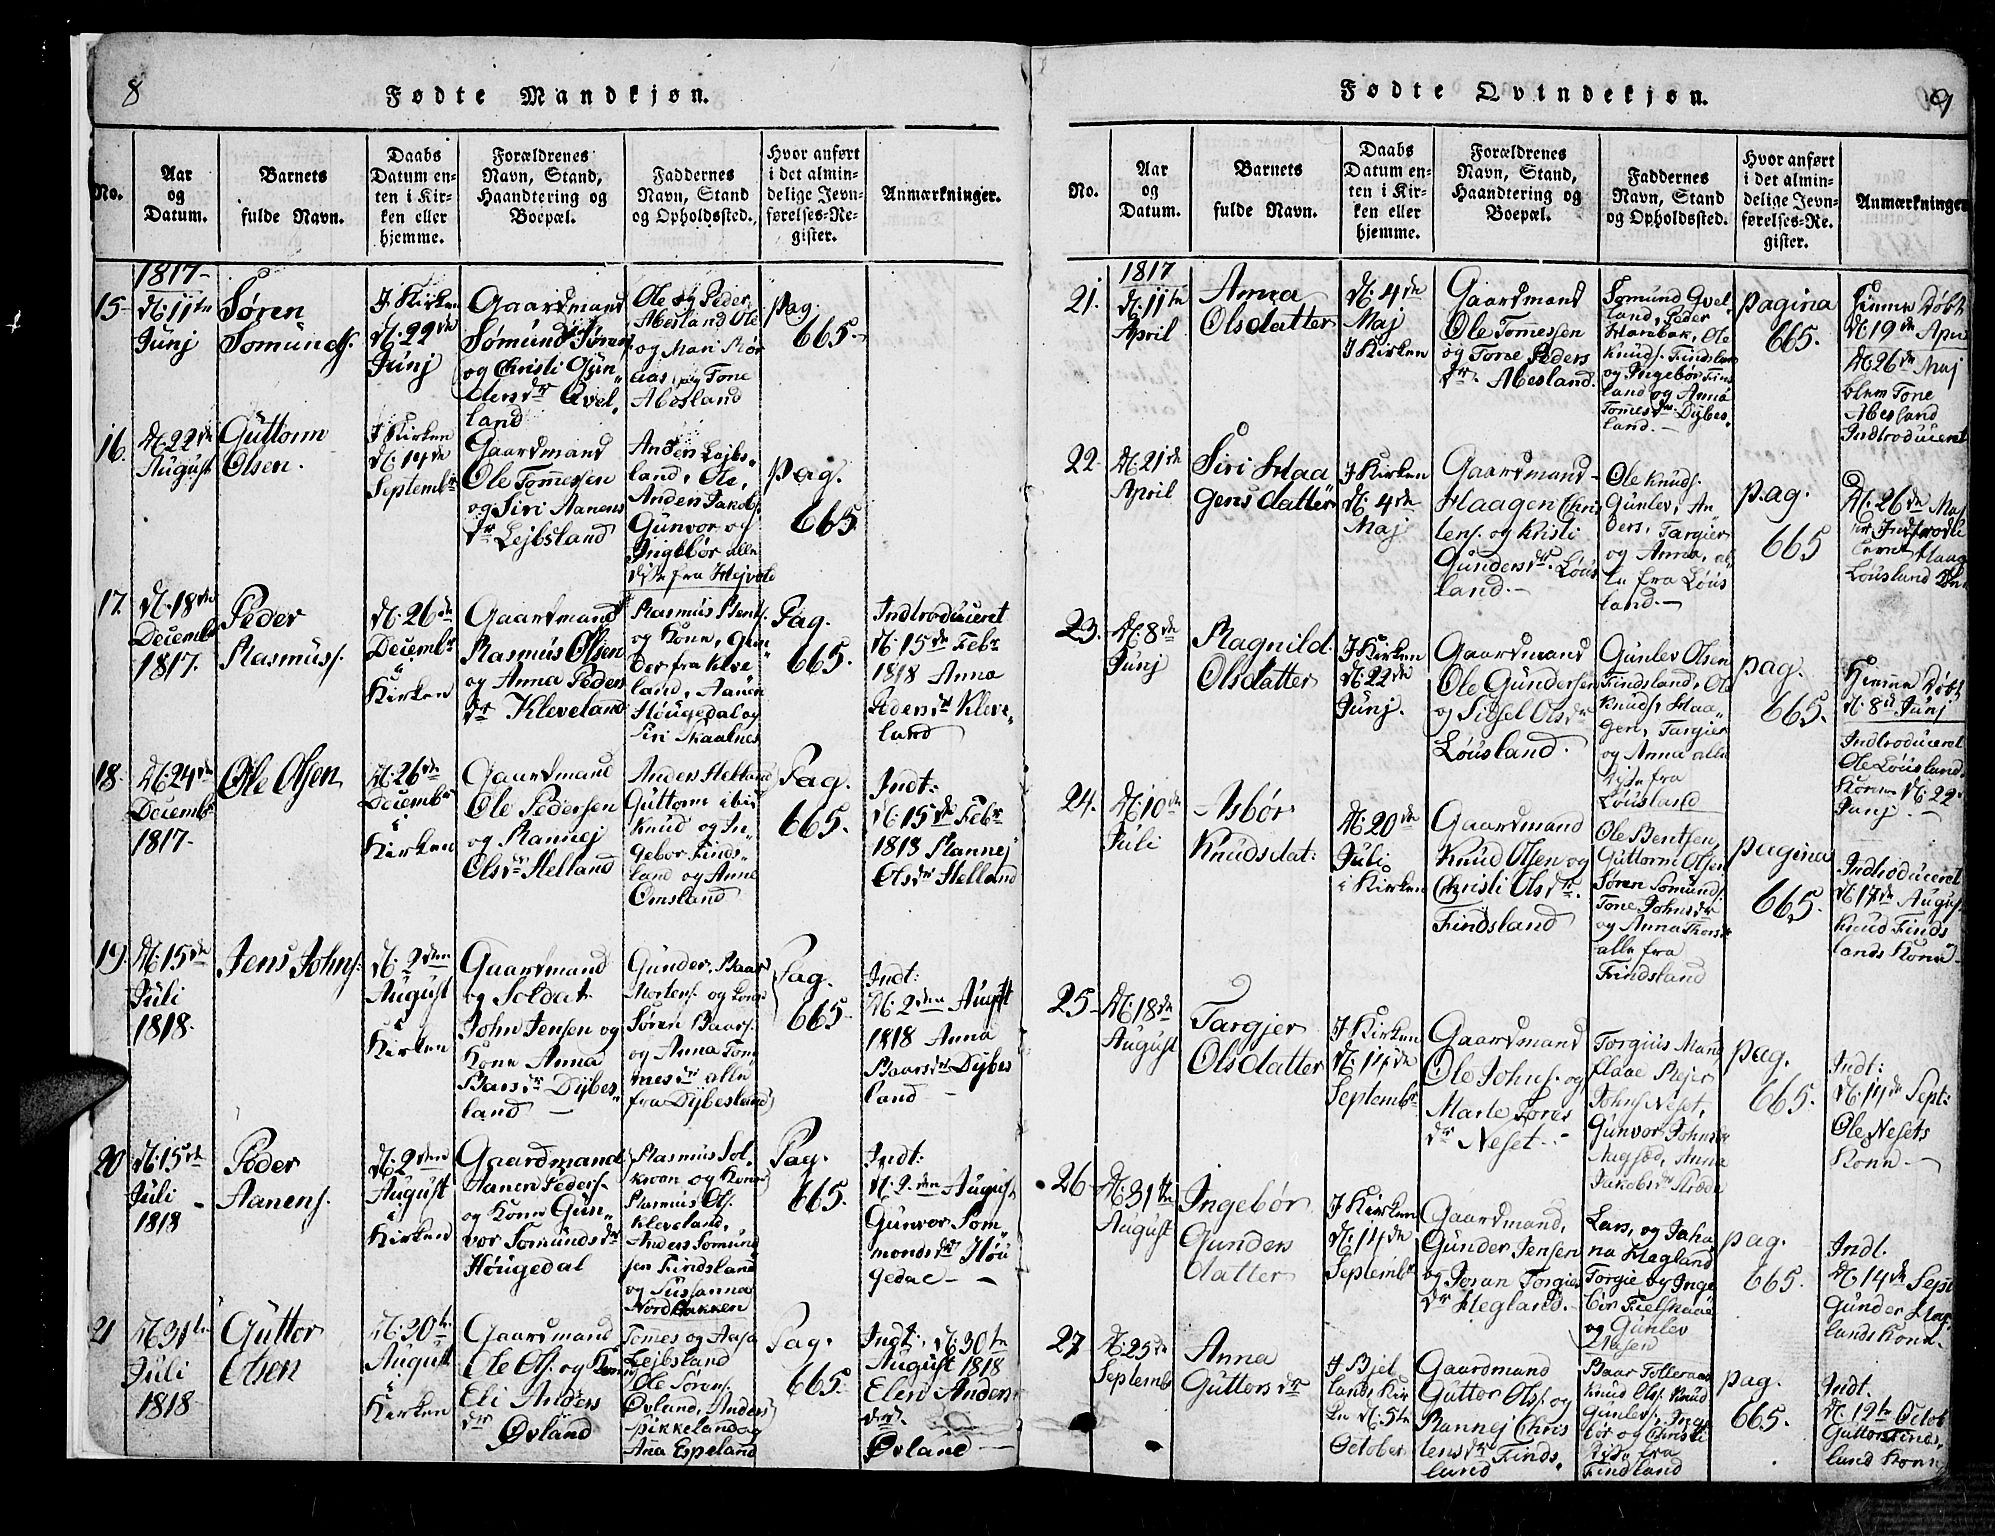 8
Fødte Mandkjøn.
No.
Aar
og
Datum.
Barnets
fulde Navn.
Daabs
Datum en-
ten i Kir-
ken eller
hjemme.
Forældrenes
Navn, Stand,
Haandtering og
Boepæl.
Faddernes
Navn, Stand
og Opholdssted.
Hvor anført
i det almin-
delige Jevn-
førelses-Re-
gister.
Anmærkninger.
1817-
15-
d. 11te
Junj
Søren
Somunds.
I Kirken
d. 22de
Junj
Gaardmand
Sømund Søren
og Christi Gün„
dersdr Qvel„
land
Ole og Peder
Abesland Ole
og Mari
aas, og Tone
Abesland
Pag.
665.
16.
d. 22de
August
Güttorm
Olsen.
I Kirken
d. 14de
Septembr
Gaardmand
Ole Tomessen
og Siri Aanens
dr Lejbsland
Anders Lejbs„
land, Ole,
Anders Jakobs.
Günvor og
Ingebør alle
fra Hejvold
pag.
665
17.
d. 18de
Decembr
1817.
Peder
Rasmuss.
d. 26de
Decembr
i
Kirken
Gaardmand
Rasmüs Olsen
og Anna Peders
dr Kleveland
Rasmüs
og Kone, Gün„
der fra Kleve
land, Aanen
Høugedal og
Siri Skaalnes
Pag.
665.
Indtroduceret
d. 15de Febr
1818 Anna
Pedersdr Kleve„
land
18.
d. 24de
Decembr
1817.
Ole Olsen
d. 26de
Decembr
i
Kirken
Gaardmand
Ole Pedersen
og Rannej
Olsdr Helland
Anders Helland
Güttorm ibid
Knud og In„
gebor Finds„
land og Anne
Omsland
Pag.
665.
Indt:
d. 15de Febr
1818 Rannej
Olsdr Helland
19.
d. 15de
Jüli
1818.
Jens Johns.
d. 2den
August
i
Kirken
Gaardmand
og Soldat
John Jensen og
Kone Anna
Baarsdr Dÿbes„
land
Günder, Baar
Mortens. og
Søren Baars.
og Anna Tom
mesdr alle
fra Dÿbesland
Pag.
665.
Indt:
d. 2den August
1818 Anna
Baarsdr Dÿbes
land
20
d. 15de
Jüli
1818
Peder
Aanens.
d. 2den
August
i
Kirken
Gaardmand
Aanen Peders.
og Kone Gün„
vor Somundsdr
Høugedal
Rasmus Sol„
kvan og Kone
Rasmus Ols.
Kleveland,
Anders Somund
sen Findsland
og Sussanna
Nordbakken
Pag.
665.
Indt:
d. 2den August
Gunvor Som„
mondsdr Høu
gedal
21
d. 31te
Jüli
1818
Gütter
Olsen
d. 30te
August
i
Kirken
Gaardmand
Ole Ols. og Kone
Eli Anders
dr
Øvland
Tomes og Aasa
Lejbsland
Ole Sørens.
Øvland, Anders
pikkeland og
Ana Espeland
Pag.
665.
Indt: d. 30te
August 1818
Elen Anders
dr
Øvland
Fødte Qvindekjøn.
9
No.
Aar
og
Datum.
Barnets
fulde Navn.
Daabs
Datum en-
ten i Kir-
ken eller
hjemme.
Forældrenes
Navn, Stand,
Haandtering og
Boepæl.
Faddernes
Navn, Stand
og Opholdssted.
Hvor anført
i det almin-
delige Jevn-
førelses-Re-
gister.
Anmærkninger
1817
21.
d. 11te
April
Anna
Olsdatter
d. 4de
Maj
I Kirken
Gaardmand
Ole Tomessen
og Tone Peders
dr. Abesland.
Somund Qvel„
land, Peder
Harabak, Ole
Knuds. Findsland
og Ingebør Finds
land og Anna
Tomesdr Dÿbes„
land.
pagina
665.
Hiemme Døbt
d. 19de Apr
d. 26de Maj
blev Tone
Abesland
Indtroduceret
22.
d. 21de
April
Siri Haa
gensdatter
I Kirken
d. 4de
Maj
Gaardmand
Haagen Chris
tens. og Kristi
Gundersdr. Løus
land.
Ole Knuds.
Günlev, An
ders, Targier
og Anna, al„
le fra Løus
land.
pag.
665
d. 26de Maj
er Indtrodu
ceret Haag
Løusland
23.
d. 8de
Junj
Ragnild.
Olsdatter
I Kirken
d. 22de
Junj.
Gaardmand
Ole Gündersen
og Sidsel Olsdr
Løusland.
Günlev Olsen
Findsland, Ole
Knuds, Haa„
gen, Targier
og Anna alle
fra
Løusland
pag.
665.
Hiemme Døbt
d. 8de Junj
Indtroduceret
Ole Løuslands
Kone d. 22
Junj.
24.
d. 10de
Jüli
Asbør
Knudsdat:
d. 20de
Juli
i Kirken
Gaardmand
Knud Olsen og
Christi Olsdr.
Findsland
Ole Bentsen,
Guttorm Olsen
Søren Somunds
Tone Johnsdr
og Anna
alle fra
Findsland
pagina
665.
Indtroduceret
d. 17de August
Knud Finds
lands Kone
25-
d. 18de
August
Targjer
Olsdatter
I Kirken
d. 14de
Septembr
Gaardmand
Ole Johns. og
Marte Tores
dr Neset.
Torgius Mand
flaae Rejer
Johns Neset,
Günvor Johnsdr
Augsod, Anna
Jakobsdr Strøde
pag.
665.
Indt:
d. 14de Sept:
Ole Nesets
Kone
26-
d. 31te
August
Ingebør
Gunders
datter
I Kirken
d. 14de
Septembr
Gaardmand,
Günder Jensen
og Joran Torgies
dr Hegland.
Lars, og Joha
na Hegland
Torgie og Inge
bør Fielskaae
og Günlev
Aasen
pag.
665.
Indt.
d. 14de Sept
Günder Heg„
lands Kone
27
d. 25de
Septembr
Anna
Guttersdr
I Bjel
lands Kir
ke d. 5te
October
Gaardmand
Gutter Ols. og
Rannej Chris
tensdr Finds„
land
Baar Tolleraas
Knud Ols. Knud
Günlevs, Inge
bør og Christi
fra
Findland
pag.
665.
Indt.
d. 12te Octob
Guttor Finds„
land Kone